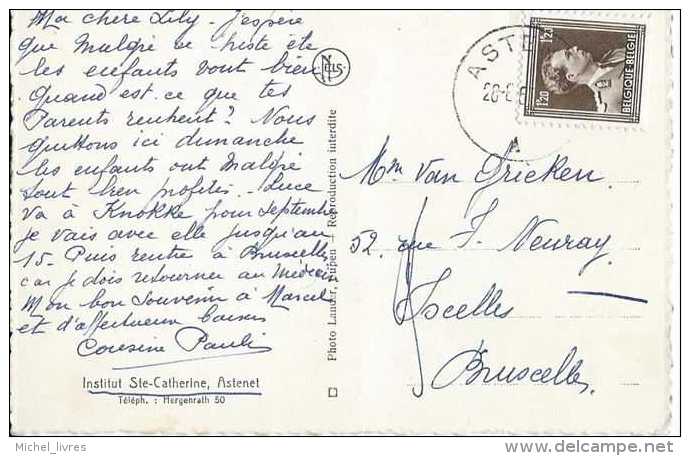 Ma chère Lily - J'espère
que Malgré ce triste été
les enfants vont bien
Quand est-ce que tes
Parents rentrent? Nous
quittons ici dimanche
les enfants ont Malgré
tout bien profités. Luce
va à Knokke pour Septembre
je vais avec elle jusqu'au
15. Puis rentre à Bruxelles
car je dois retourner au Médecin
Mon bon Souvenir à Marcel
et d'affectueux baisers
Cousine Pauli
Institut Ste-Catherine, Astenet
Téléph. : Hergenrath 50
NELS
Photo Lander, Eupen / Reproduction interdite
ASTE
28-8
A
1.20
1.20
BELGIQUE-BELGIE
Mme Van Dricken
52, rue F. Neuray
Ixcelles
Bruxcelles
Michel_livres
www.delcampe.net